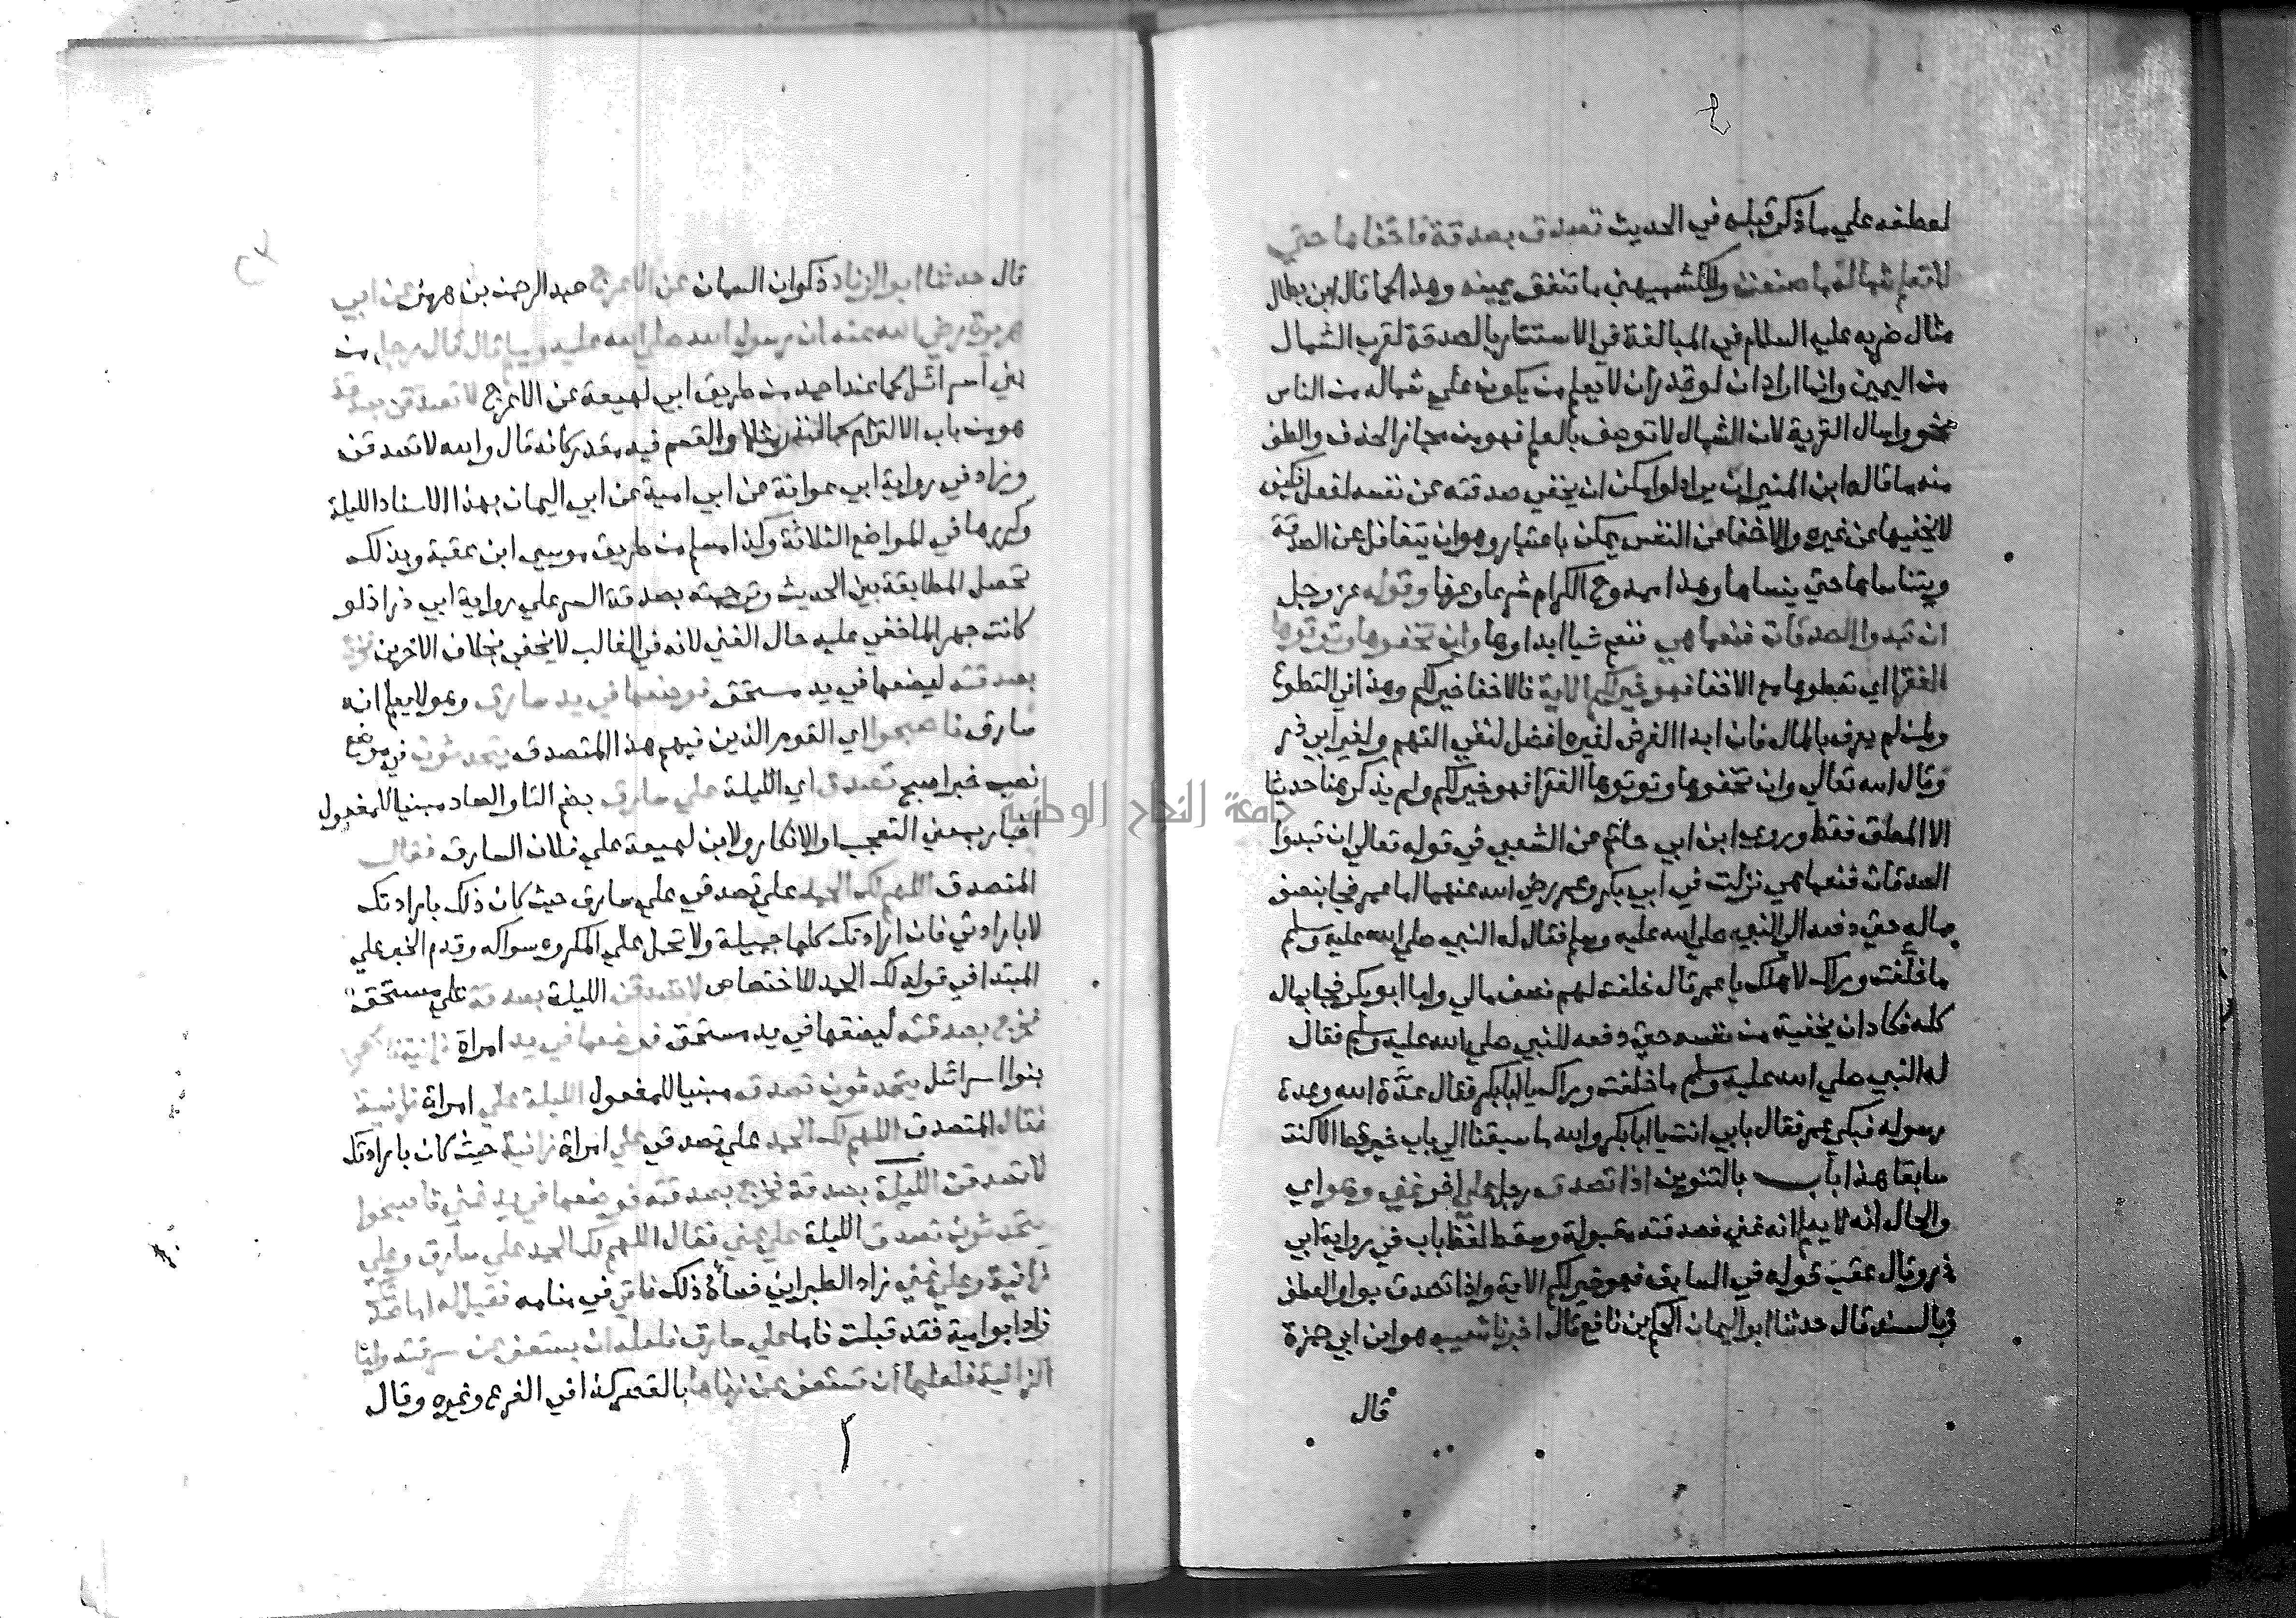 لعطفه علي ما ذكر قبله في الحديث تصدق بصدقة فاخفاها حتي
لا تعلم شماله ما صنعت وللكشميهني ما تنفق يمينه وهذا كما قال ابن بطال
مثال ضربه عليه السلام في المبالغة في الاستتار بالصدقة لقرب الشمال
من اليمين وانما اراد ان لو قدر ان لا يعلم من يكون علي شماله من الناس
نحو واسال القرية لان الشمال لا توصف بالعلم فهو من مجاز الحذف والطف
منه ما قاله ابن المنير ان يراد لو امكن ان يخفي صدقته عن نفسه لفعل فكيف
لا يخفيها عن غيره والاخفا عن النفس يمكن باعتبار وهو ان يتغافل عن الصدقة
ويتناساها حتي ينساها وهذا ممدوح الكرام شرعا وعرفا وقوله عز وجل
ان تبدوا الصدقات فنعما هي فنعم شيا ابداوها وان تخفوها وتوتوها
الفقرا اي تعطوها مع الاخفا فهو خير لكم الاية فالاخفا خير لكم وهذا في التطوع
ولمن لم يعرف بالمال فان ابدا الفرض لغيره افضل لنفي التهم ولغير ابي ذر
وقال الله تعالي وان تخفوها وتوتوها الفقرا فهو خير لكم ولم يذكر هنا حديثا
الا المعلق فقط وروي ابن ابي حاتم عن الشعبي في قوله تعالي ان تبدوا
الصدقات فنعما هي نزلت في ابي بكر وعمر رضي الله عنهما اما عمر فجا بنصف
ماله حتي دفعه الي النبي صلي الله عليه وسلم فقال له النبي صلي الله عليه وسلم
ما خلفت وراك لاهلك يا عمر قال خلفت لهم نصف مالي واما ابو بكر فجا بماله
كله فكاد ان يخفيه من نفسه حتي دفعه للنبي صلي الله عليه وسلم فقال
له النبي صلي الله عليه وسلم ما خلفت وراك يا ابا بكر فقال عدة الله وعدة
رسوله فبكي عمر فقال بابي انت يا ابا بكر والله ما سبقنا الي باب خير قط الا كنت
سابقا هذا باب بالتنوين اذا تصدق رجل علي اخر غني وهو اي
والحال انه لا يعلم انه غني فصدقته مقبولة وسقط لفظ باب في رواية ابي
ذر وقال عقب قوله في السابق فهو خير لكم الاية واذا تصدق بواو العطف
وبالسند قال حدثنا ابو اليمان الحكم بن نافع قال اخبرنا شعيب هو ابن ابي حمزة
قال
قال حدثنا ابو الزناد ذكوان السمان عن الاعرج عبد الرحمن بن هرمز عن ابي
هريرة رضي الله عنه ان رسول الله صلي الله عليه وسلم قال قال رجل من
بني اسرائيل كما عند احمد من طريق ابن لهيعة عن الاعرج لا تصدقن بصدقة
هو من باب الالتزام كالنذر مثلا والقسم فيه مقدر كانه قال والله لا تصدقن
وزاد في رواية ابي عوانة عن ابي امية عن ابي اليمان بهذا الاسناد الليلة
وكررها في المواضع الثلاثة وكذا مسلم من طريق موسي ابن عقبة وبذلك
تحصل المطابقة بين الحديث وترجمته بصدقة السر علي رواية ابي ذر اذ لو
كانت جهرا لما خفي عليه حال الغني لانه في الغالب لا يخفي بخلاف الاخرين فخرج
بصدقته ليضعها في يد مستحق فوضعها في يد سارق وهو لا يعلم انه
سارق فاصبحوا اي القوم الذين فيهم هذا المتصدق يتحدثون في موضع
نصب خبر اصبح تصدق اي الليلة علي سارق بضم التا والصاد مبنيا للمفعول
اخبار بمعني التعجب او الانكار ولابن لهيعة علي فلان السارق فقال
المتصدق اللهم لك الحمد علي تصدقي علي سارق حيث كان ذلك بارادتك
لا بارادتي فان ارادتك كلها جميلة ولا تحمل علي المكروه سواكه وقدم الخبر علي
المبتدا في قوله لك الحمد للاختصاص لا تصدقن الليلة بصدقة علي مستحق
فخرج بصدقته ليضعها في يد مستحق فوضعها في يد امراة زانية فاصبح
بنوا اسرائيل يتحدثون تصدق مبنيا للمفعول الليلة علي امراة زانية
فقال المتصدق اللهم لك الحمد علي تصدقي علي امراة زانية حيث كان بارادتك
لا تصدقن الليلة بصدقة فخرج بصدقته فوضعها في يد غني فاصبحوا
يتحدثون تصدق الليلة علي غني فقال اللهم لك الحمد علي سارق وعلي
زانية وعلي غني زاد الطبراني فساءه ذلك فاتي في منامه فقيل له اما صدقتك
زاد ابو امية فقد قبلت فاما علي سارق فلعله ان يستعف عن سرقته واما
الزانية فلعلها ان تستعف عن زناها بالقصر كذا في الفرع وغيره وقال
جامعة النجاح الوطنية